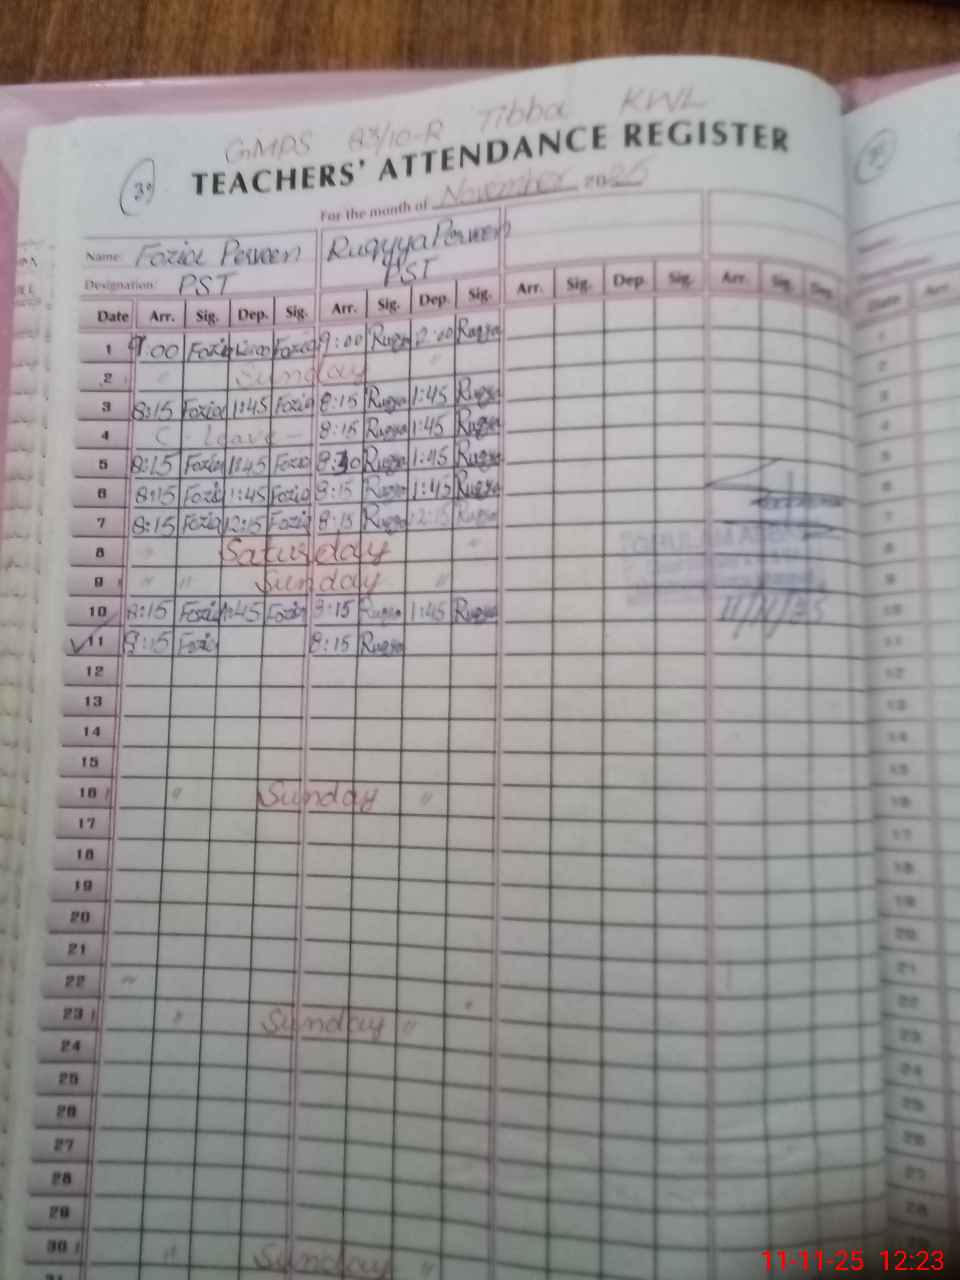 GMPS 83/10-R Tibba KWL
TEACHERS' ATTENDANCE REGISTER
39
For the month of November 2025
Name: Fozia Perveen Ruqyya Perveen
Designation: PST PST
Date Arr. Sig. Dep. Sig. Arr. Sig. Dep. Sig. Arr. Sig. Dep. Sig. Arr. Sig. Dep.
1 9:00 Fozia Fozia 9:00 Ruqya 2:00 Ruqya
2 Sunday "
3 8:15 Fozia 1:45 Fozia 8:15 Ruqya 1:45 Ruqya
4 C. leave - 8:15 Ruqya 1:45 Ruqya
5 8:15 Fozia 1:45 Fozia Ruqya 1:45 Ruqya
6 8:15 Fozia 1:45 Fozia 8:15 Ruqya 1:45 Ruqya
7 8:15 Fozia 12:15 Fozia 8:15 Ruqya 12:15 Ruqya
8 " Saturday "
9 " " Sunday "
10 8:15 Fozia 1:45 Fozia 8:15 Ruqya 1:45 Ruqya
11/11/25
11 8:15 Fozia 8:15 Ruqya
12
13
14
15
16 " Sunday "
17
18
19
20
21
22 "
23 " Sunday " "
24
25
26
27
28
29
30 " Sunday "
31
11-11-25 12:23